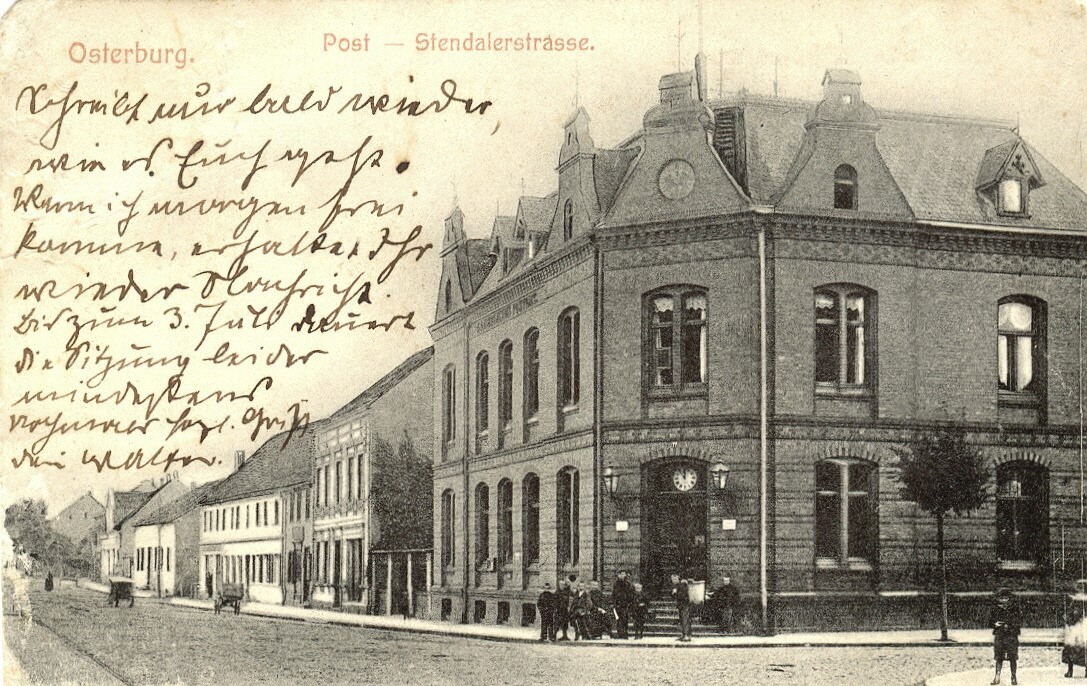 Osterburg.
Post — Stendalerstrasse.
Schreibt nur bald wieder,
wie es Euch geht.
Wenn ich morgen frei
komme, erhaltet Ihr
wieder Nachricht.
Bis zum 3. Juli dauert
die Sitzung leider
mindestens
nochmals herzl. Gruß
Dein Walter.